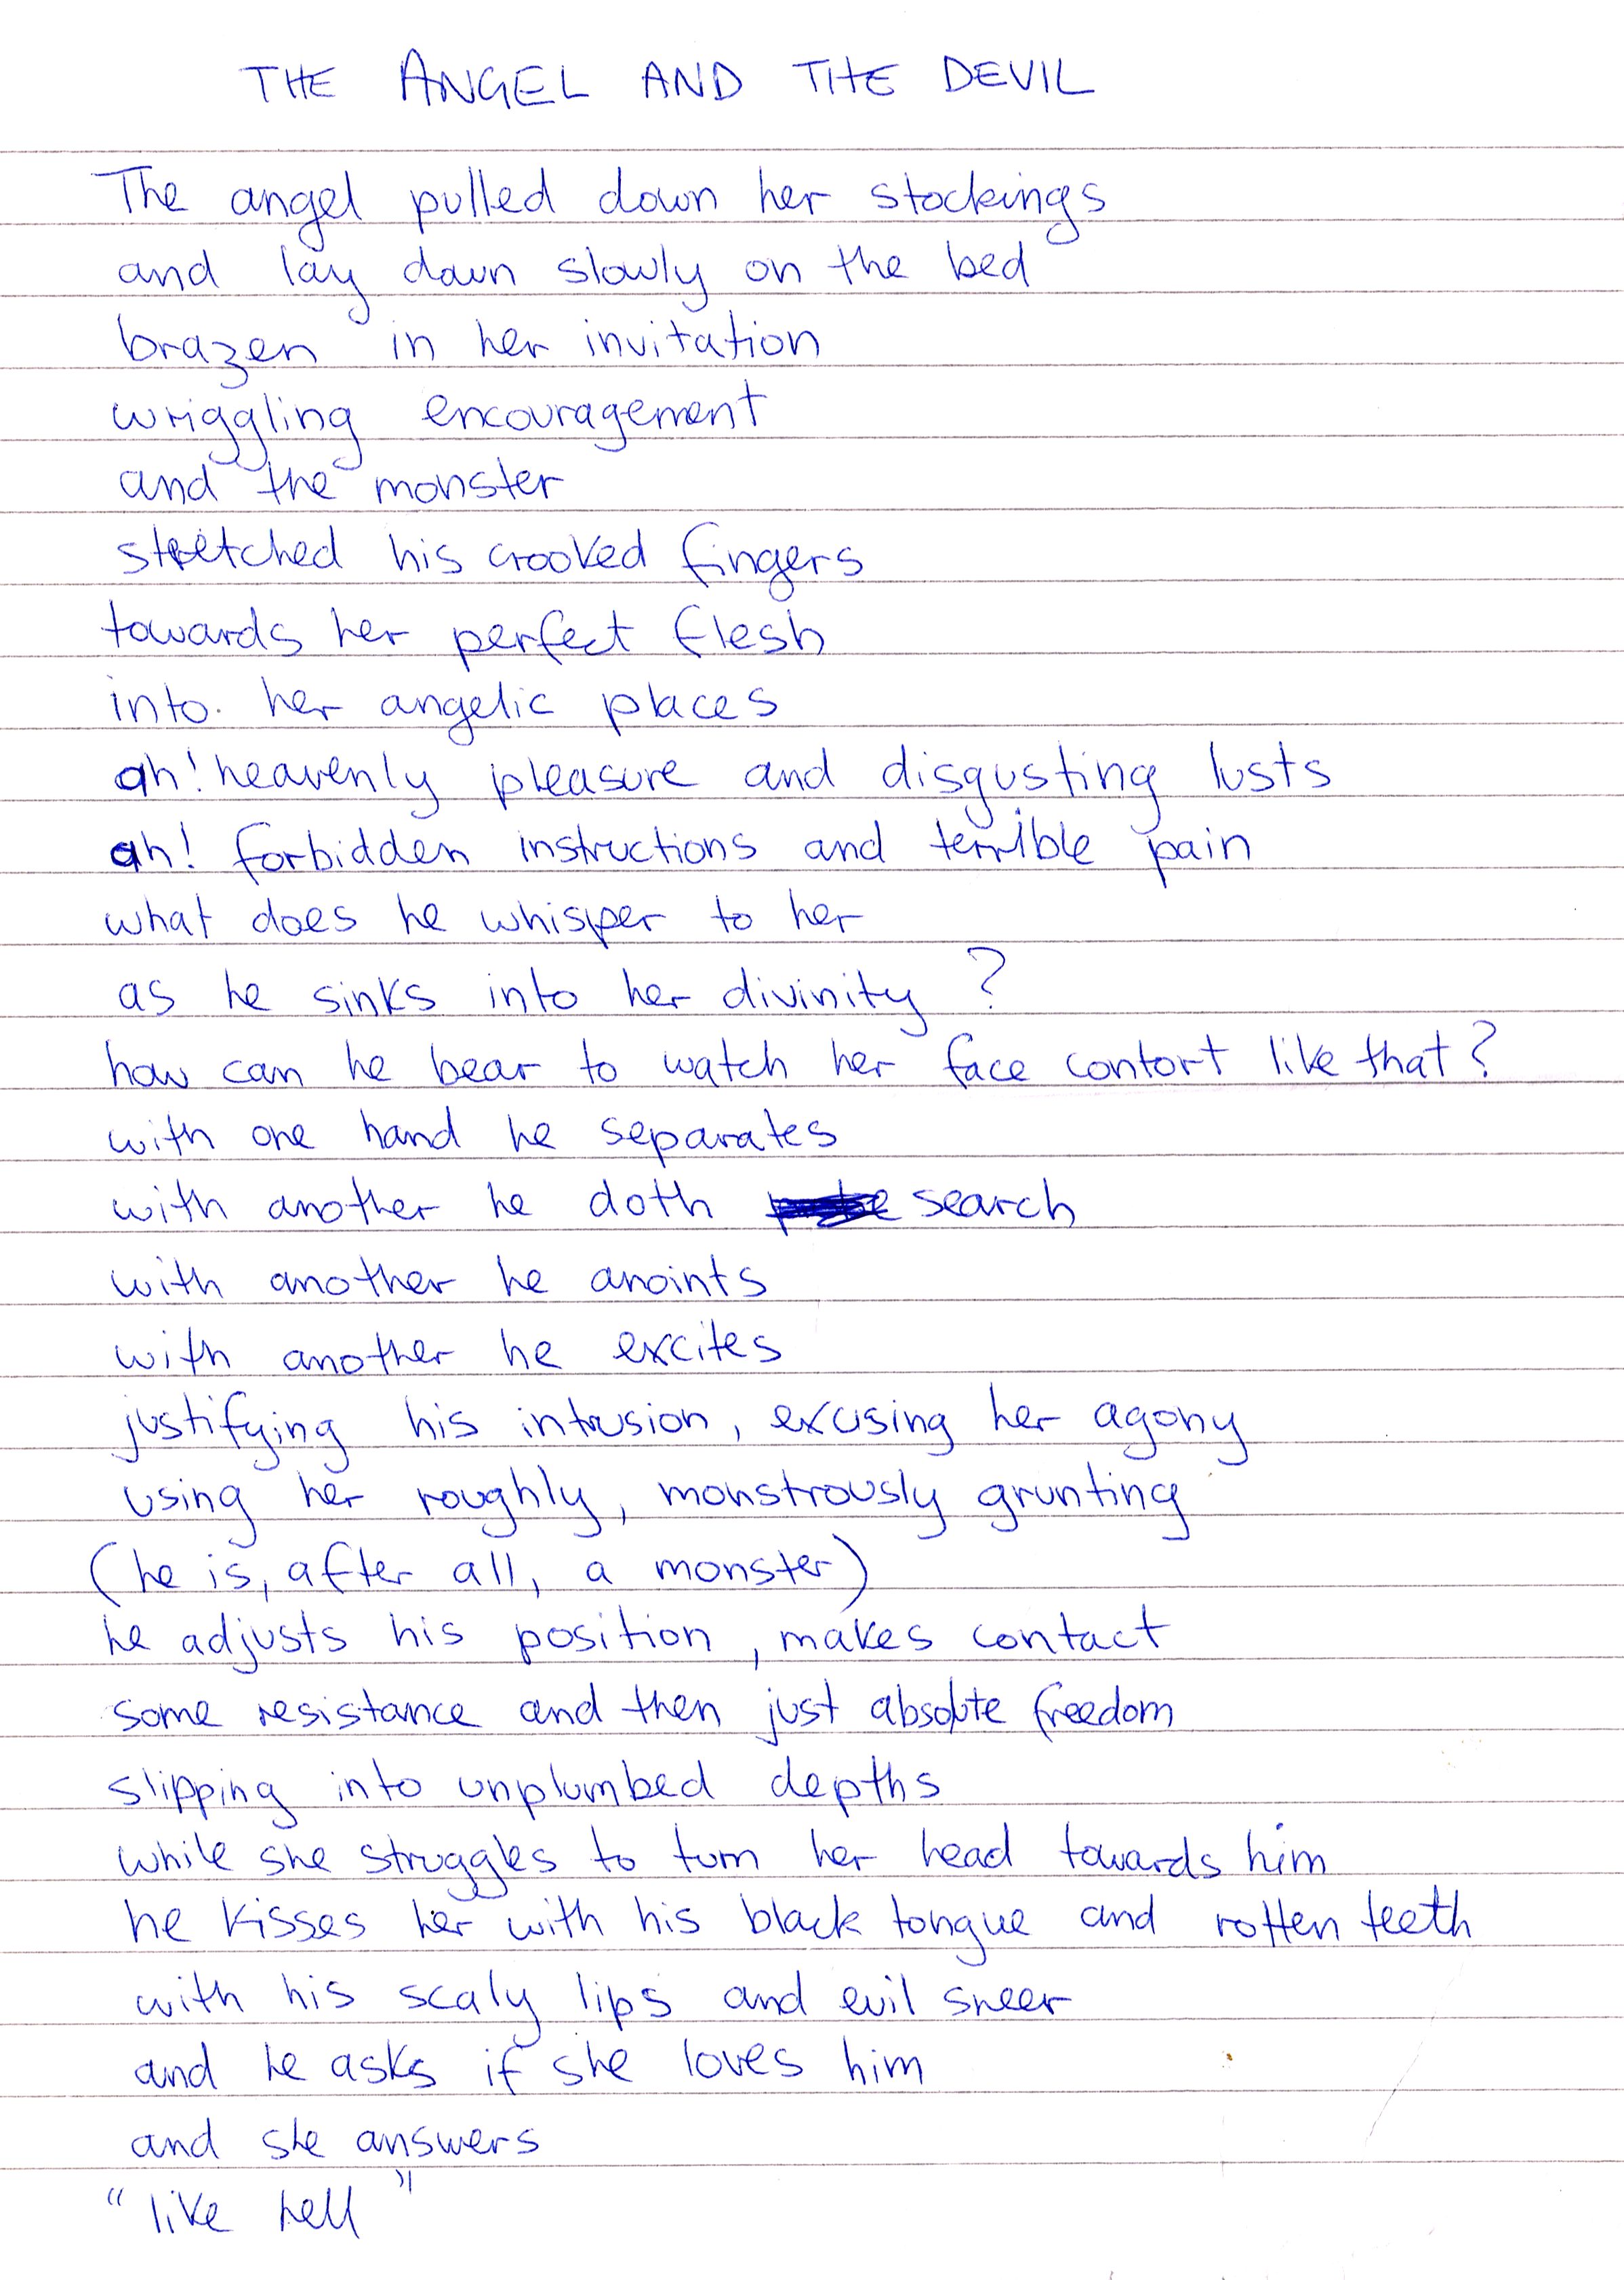 THE ANGEL AND THE DEVIL
The angel pulled down her stockings
and lay down slowly on the bed
brazen in her invitation
wriggling encouragement
and the monster
stretched his crooked fingers
towards her perfect flesh
into her angelic places
ah! heavenly pleasure and disgusting lusts
ah! forbidden instructions and terrible pain
what does he whisper to her
as he sinks into her divinity?
how can he bear to watch her face contort like that?
with one hand he separates
with another he doth search
with another he anoints
with another he excites
justifying his intrusion, excusing her agony
using her roughly, monstrously grunting
(he is, after all, a monster)
he adjusts his position, makes contact
some resistance and then just absolute freedom
slipping into unplumbed depths
while she struggles to turn her head towards him
he kisses her with his black tongue and rotten teeth
with his scaly lips and evil sneer
and he asks if she loves him
and she answers
"like hell"